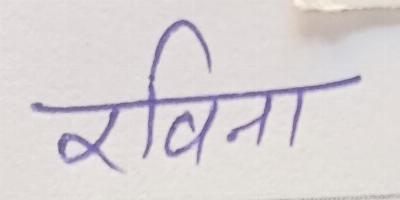 रविना